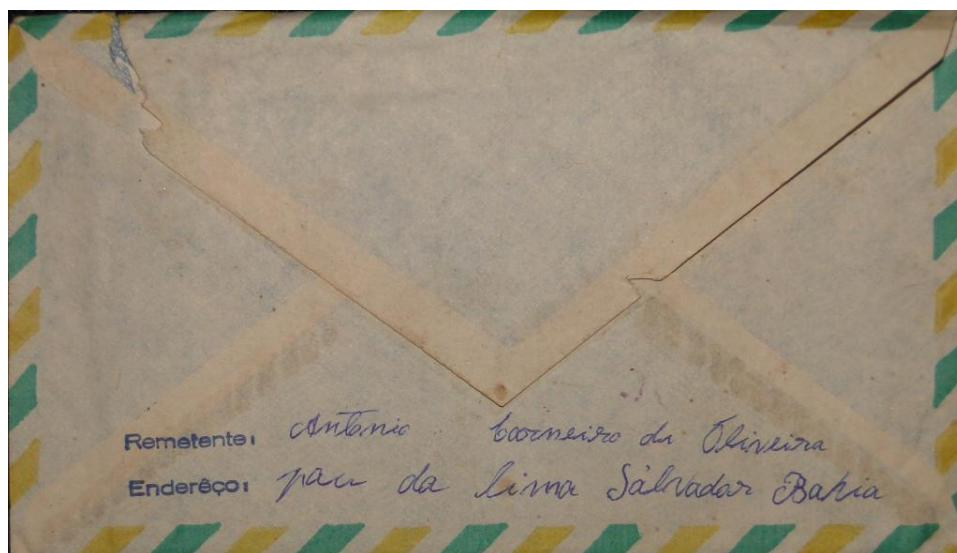 Remetente: Antonio Carneiro de Oliveira
Enderêço: pau da lima Salvador Bahia